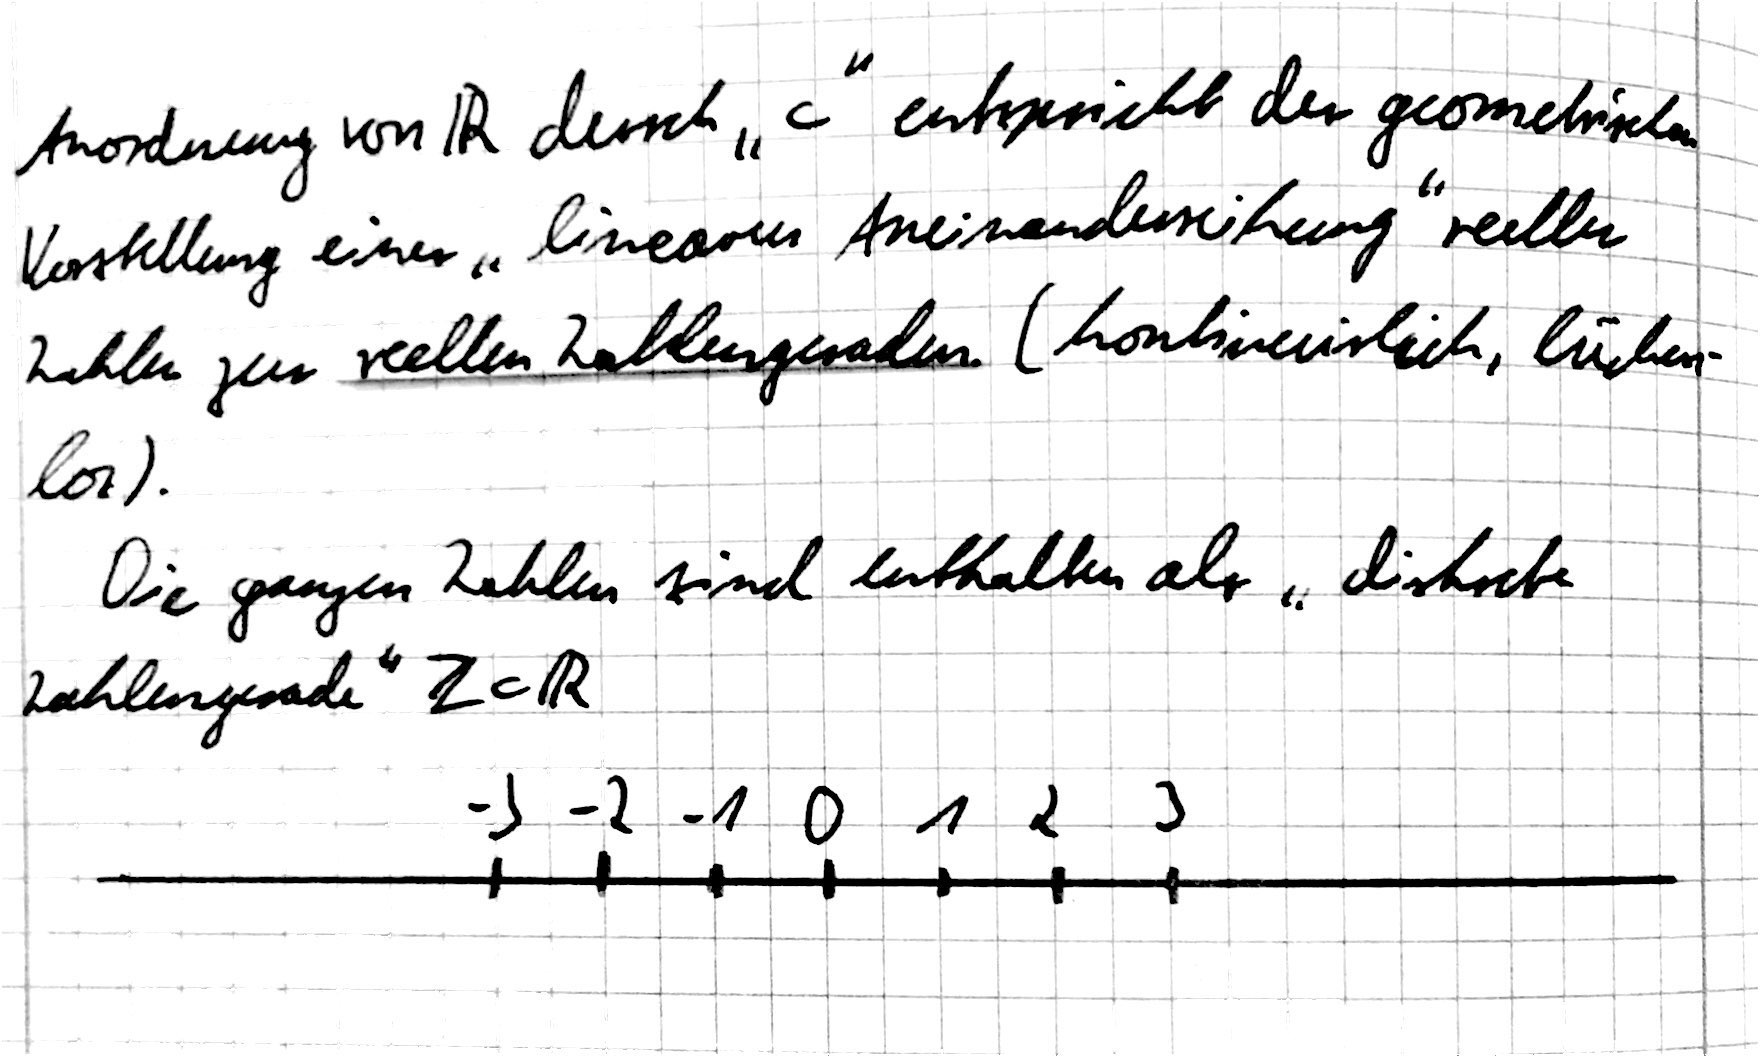 Anordnung von ℝ durch „⊂“ entspricht der geometrischen
Vorstellung einer „linearen Aneinanderreihung“ reeller
Zahlen zur reellen Zahlengeraden (kontinuierlich, lücken-
los).
Die ganzen Zahlen sind enthalten als „diskrete
Zahlengerade“ ℤ⊂ℝ
-3 -2 -1 0 1 2 3